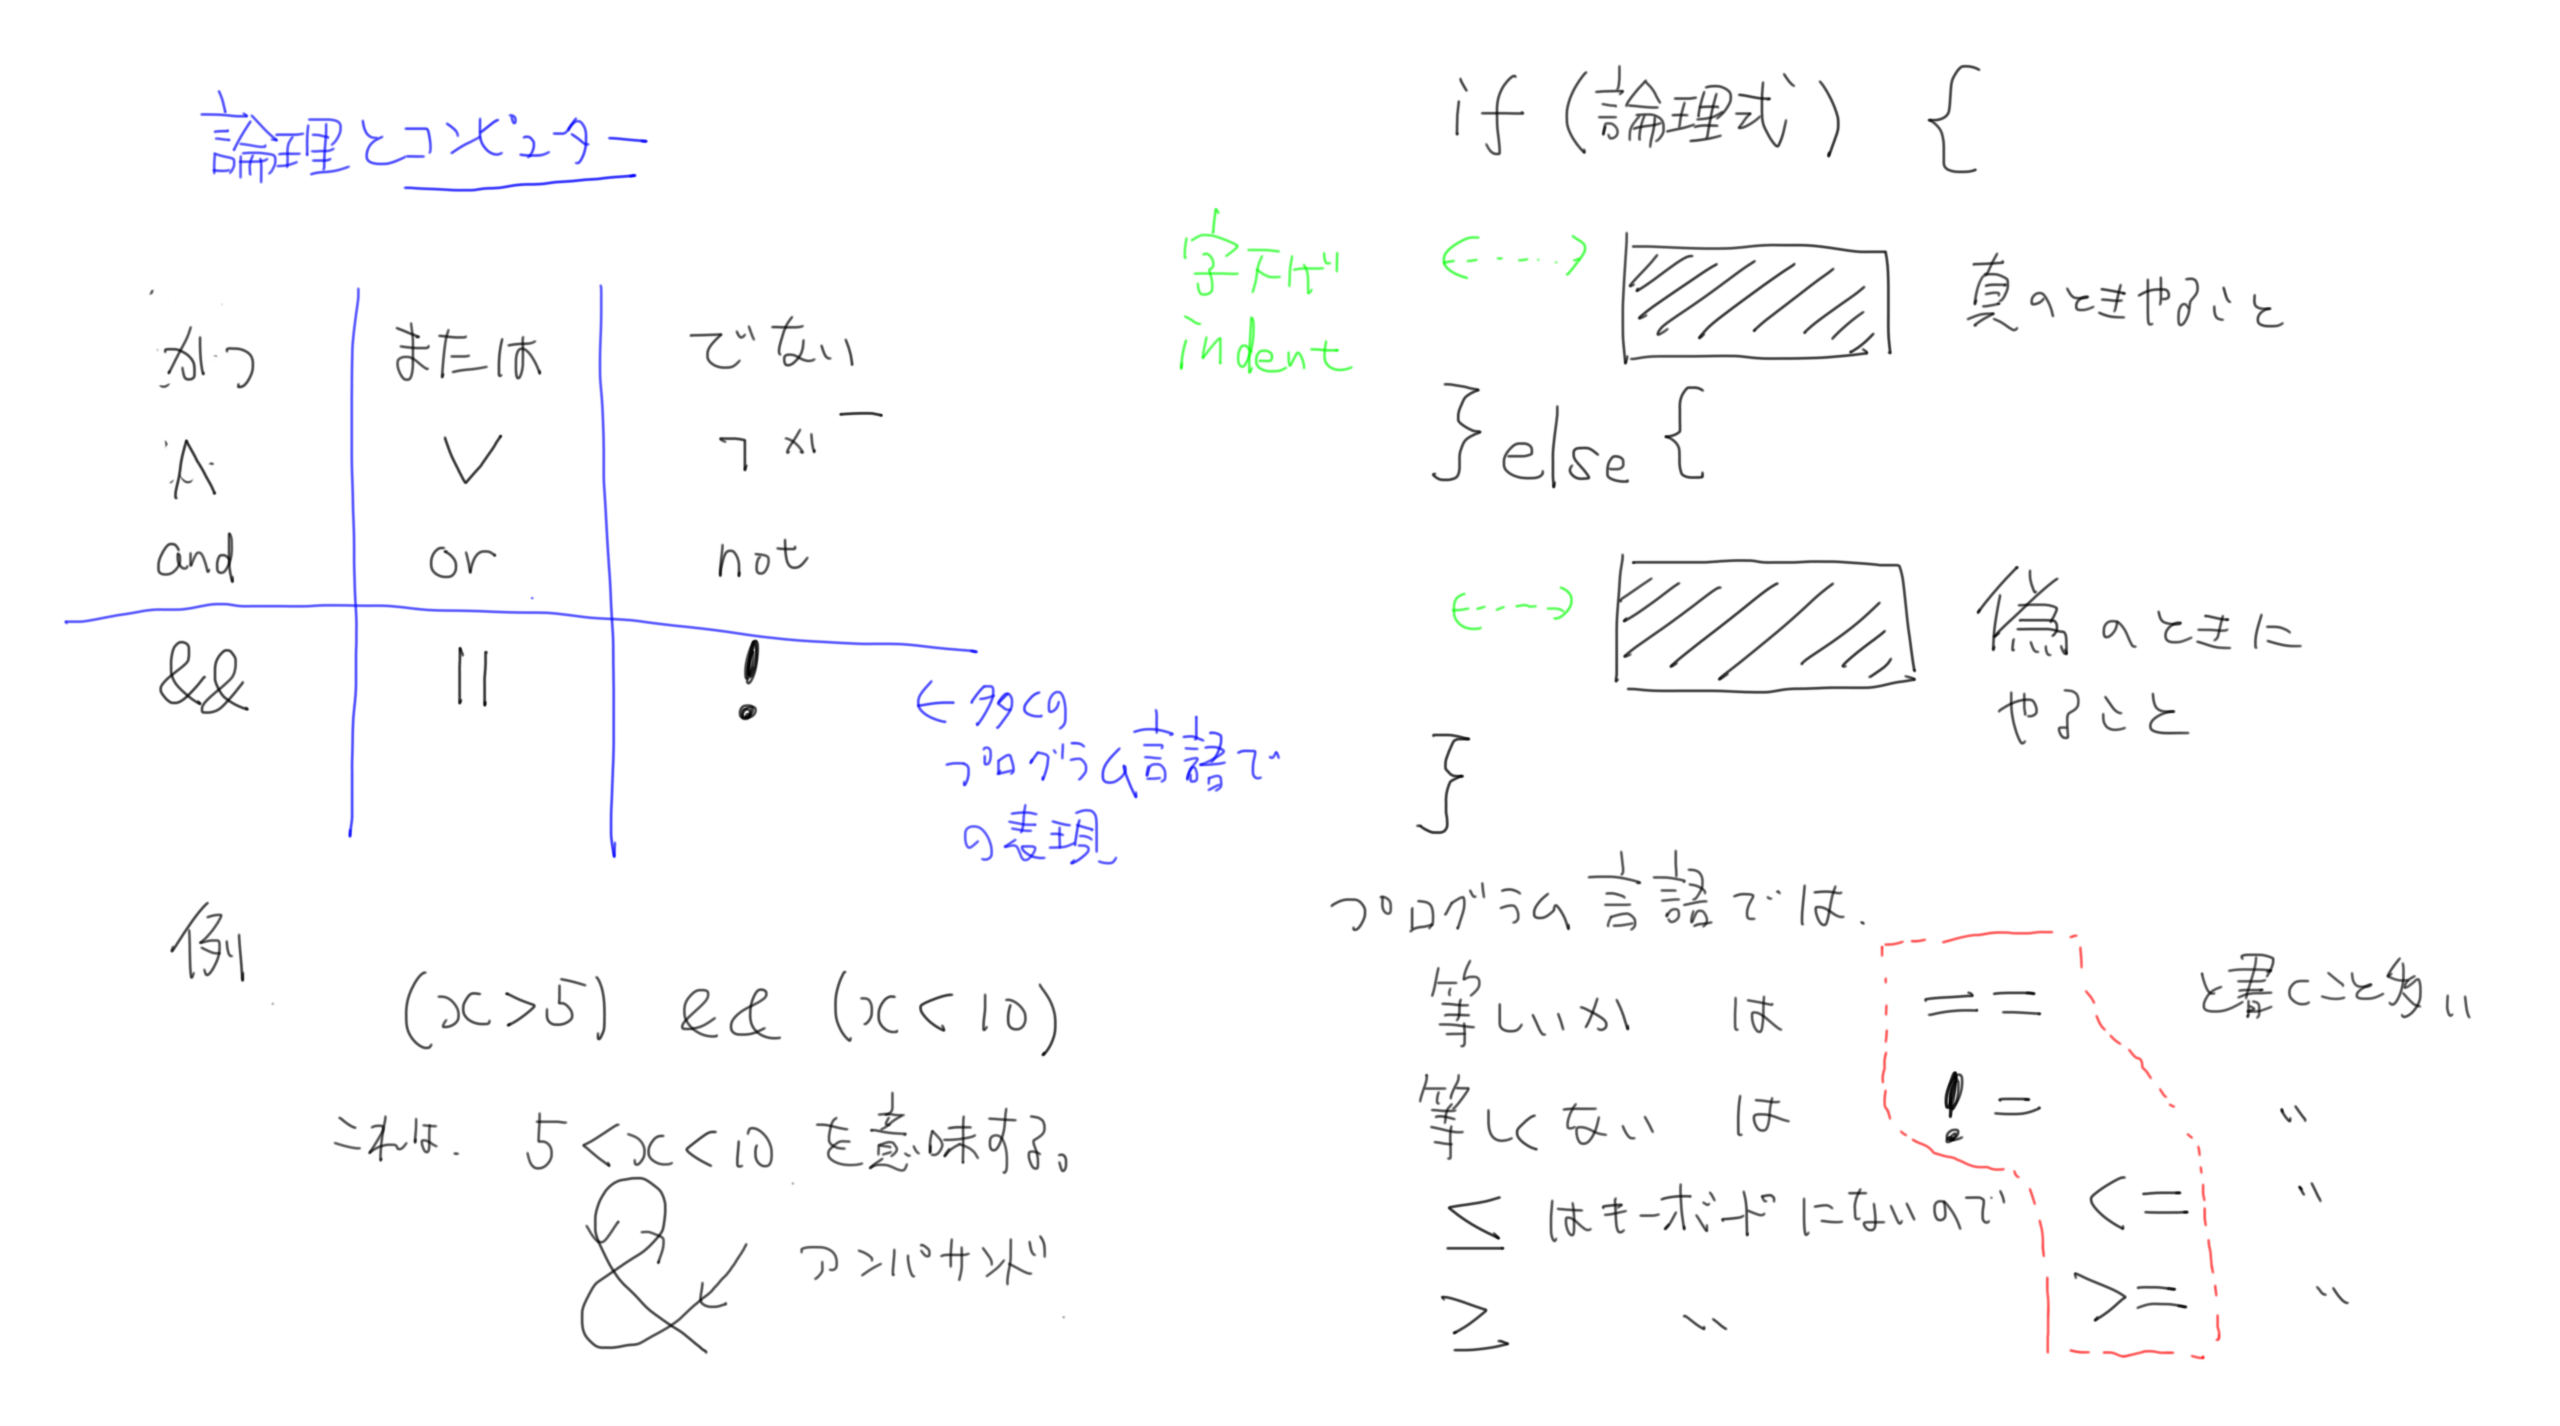 論理とコンピューター
かつ または でない
∧ ∨ ¬ や ‾
and or not
&& || !
←多くの
プログラム言語で
の表現
例
(x>5) && (x<10)
これは. 5<x<10 を意味する。
& アンパサンド
if (論理式) {
字下げ
indent
真のときやること
} else {
偽のときに
やること
}
プログラム言語では.
等しいか は == と書くこと多い
等しくない は != 〃
≤ はキーボードにないので <= 〃
≥ 〃 >= 〃